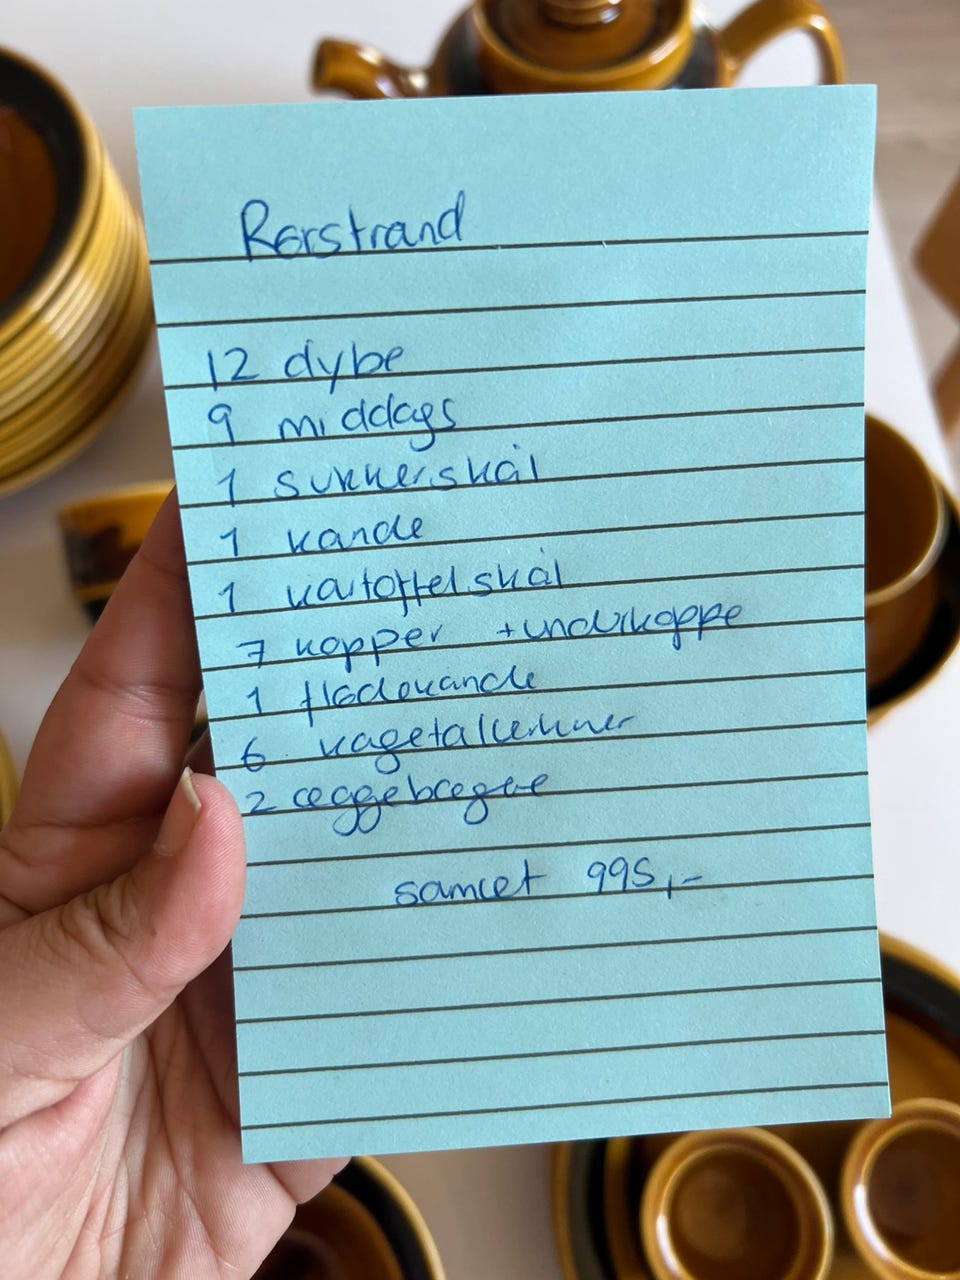 Rørstrand
12 dybe
9 middags
1 sukkerskål
1 kande
1 kartoffelskål
7 kopper +underkoppe
1 flødekande
6 kagetallerkner
2 æggebægre
samlet 995,-